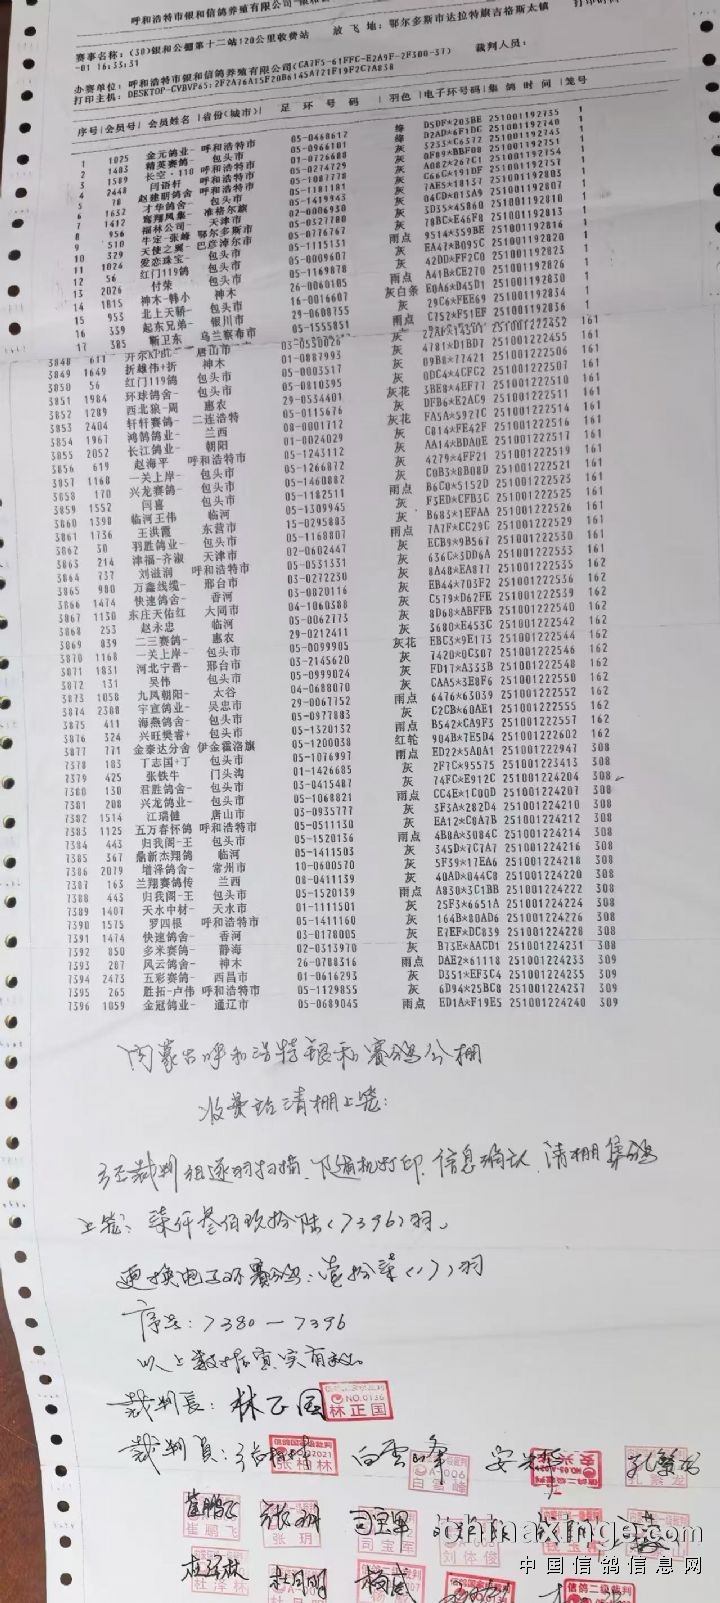 呼和浩特市银和信鸽养殖有限公司-银和信
打印时间
赛事名称: (30)银和公棚第十二站120公里收费站 放飞地: 鄂尔多斯市达拉特旗吉格斯太镇
-01 16:33:31
办赛单位: 呼和浩特市银和信鸽养殖有限公司(CA7F5-61FFC-E2A9F-2F300-37) 裁判人员:
打印主机: DESKTOP-CVBVP65:2F2A76A15F20B6145A721F19F2C7A838
序号 会员号 会员姓名 省份(城市) 足环号码 羽色 电子环号码 集鸽时间 笼号
1 1025 金元鸽业- 呼和浩特市 05-0468612 绛 D5DF*203BE 251001192735 1
2 1403 精英赛鸽 包头市 05-0966101 绛 D2AD*6F1DC 251001192740 1
3 1589 长空·118 呼和浩特市 01-0726688 灰 3233*C6372 251001192743 1
4 2448 闫语轩 呼和浩特市 05-0274729 灰 0F89*BBF08 251001192751 1
5 78 赵建朝鸽舍 呼和浩特市 05-1087778 灰 A082*267C1 251001192754 1
6 1637 才华鸽舍- 包头市 05-1181181 灰 C66C*191DF 251001192757 1
7 1412 凤集- 准格尔旗 05-1419943 灰 7AE5*18137 251001192803 1
8 956 福林公司- 天津市 02-0006930 灰 04CD*013A9 251001192807 1
9 510 牛定-张峰 鄂尔多斯市 05-0327780 灰 3D35*45860 251001192810 1
10 329 天使之翼- 巴彦淖尔市 05-0776767 灰 78BC*E46F8 251001192813 1
11 1026 爱恋珠宝- 包头市 05-1115131 雨点 9514*359BE 251001192817 1
12 56 红门119鸽 包头市 05-0009607 灰 EA47*B095C 251001192820 1
13 2026 付荣 包头市 05-1169878 灰 42DD*FF2C0 251001192823 1
14 1815 神木-韩小 神木 26-0060105 雨点 A41B*CE270 251001192826 1
15 953 北上天骄- 包头市 16-0016607 灰白条 E0A6*D45D1 251001192830 1
16 339 起东兄弟- 银川市 29-0608755 灰 29C6*FEE69 251001192834 1
17 385 靳卫东 乌兰察布市 05-1555851 雨点 C752*F51EF 251001192836 1
3848 611 开尔KPBL- 唐山市 03-0530026 灰 22AF*145D1 251001222452 161
3849 1649 折雄伟+折 神木 01-0887993 灰 4781*D1BD7 251001222455 161
3850 56 红门119鸽 包头市 05-0003517 灰 09B8*77421 251001222506 161
3851 1984 环球鸽舍- 包头市 05-0810395 灰 0DC4*4CFC2 251001222507 161
3852 1289 西北狼-周 惠农 29-0534401 灰花 3BE8*4EF77 251001222510 161
3853 2404 轩轩赛鸽- 二连浩特 05-0115676 灰 DFB6*E2AC9 251001222511 161
3854 1967 鸿鹄鸽业- 兰西 08-0001712 灰花 FA5A*5927C 251001222514 161
3855 2052 长江鸽业- 朝阳 01-0024029 灰 C814*FE42F 251001222516 161
3856 619 赵海平 呼和浩特市 05-1243112 灰 AA14*BDA0E 251001222517 161
3857 1168 一关上岸- 包头市 05-1266872 灰 4279*4FF21 251001222519 161
3858 170 兴龙赛鸽- 包头市 05-1460882 灰 C0B3*8B08D 251001222521 161
3859 1552 闫喜 包头市 05-1182511 雨点 B6C0*5152D 251001222523 161
3860 1398 临河王伟 临河 05-1309945 灰 F3ED*CFB3C 251001222525 161
3861 1736 王洪霞 东营市 15-0295883 灰 B683*1EFAA 251001222527 161
3862 30 羽胜鸽业- 包头市 05-1168807 雨点 7A7F*CC29C 251001222529 161
3863 214 津福-齐淑 天津市 02-0602447 灰 ECB9*9B567 251001222530 161
3864 737 刘滋润 呼和浩特市 05-0531331 灰 636C*3DD6A 251001222533 161
3865 980 万鑫线缆- 邢台市 03-0272230 灰 8A48*EA877 251001222535 162
3866 1474 快速鸽舍- 香河 03-0820116 灰 EB44*703F2 251001222536 162
3867 1130 东庄天佑红 大同市 04-1060388 灰 C579*D62FE 251001222539 162
3868 253 赵永忠 临河 05-0062773 灰 8D68*ABFFB 251001222540 162
3869 839 二三赛鸽- 惠农 29-0212411 灰 3680*E453C 251001222542 162
3870 1168 一关上岸- 包头市 05-0099905 灰花 EBC3*9E173 251001222544 162
3871 1831 河北宁晋- 邢台市 03-2145620 灰 7420*0C307 251001222546 162
3872 131 吴伟 包头市 05-0999024 灰 FD17*A333B 251001222548 162
3873 1058 九凤朝阳- 太谷 04-0688070 灰 CAA5*3E8F6 251001222550 162
3874 2308 宇宣鸽业- 吴忠市 29-0067752 雨点 6476*63039 251001222552 162
3875 411 海燕鸽舍- 包头市 05-0977883 灰 C2CB*60AE1 251001222555 162
3876 324 兴旺樊睿+ 包头市 05-1320132 雨点 B542*CA9F3 251001222557 162
3877 771 金泰达分舍 伊金霍洛旗 05-1200038 红轮 904B*7E5D4 251001222602 162
7378 103 丁志国+丁 包头市 05-1076997 雨点 ED22*5A0A1 251001222947 308
7379 425 张铁牛 门头沟 01-1426685 灰 2F7C*95575 251001223413 308
7380 130 君胜鸽舍- 包头市 03-0415487 灰 74FC*E912C 251001224204 308
7381 208 兴龙鸽业- 包头市 05-1068821 雨点 CC4E*1C00D 251001224207 308
7382 1514 江瑞健 唐山市 03-0935777 灰 3F3A*282D4 251001224210 308
7383 1125 五万春怀鸽 呼和浩特市 05-0511130 灰 EA12*C8A7B 251001224212 308
7384 443 归我阁-王 包头市 05-1520136 雨点 4B8A*3084C 251001224214 308
7385 367 鼎新杰翔鸽 临河 05-1411503 灰 345D*7C7A7 251001224216 308
7386 2079 增泽鸽舍- 常州市 10-0600570 灰 5F39*17EA6 251001224218 308
7387 163 兰翔赛鸽传 兰西 08-0411139 灰 40AD*044C8 251001224220 308
7388 443 归我阁-王 包头市 05-1520139 雨点 A830*3C1BB 251001224222 308
7389 1407 天水中材- 天水市 01-1111501 灰 25F3*6651A 251001224224 308
7390 1575 罗四根 呼和浩特市 05-1411160 灰 164B*80AD6 251001224226 308
7391 1474 快速鸽舍- 香河 03-0178005 灰 E7EF*DC839 251001224228 308
7392 850 多米赛鸽- 静海 02-0313970 灰 B73E*AACD1 251001224231 308
7393 287 风云鸽舍- 神木 26-0788316 雨点 DAE2*61118 251001224233 309
7394 2473 五彩赛鸽- 西昌市 01-0616293 灰 D351*EF3C4 251001224235 309
7395 265 胜拓-卢伟 呼和浩特市 05-1129855 灰 6D94*25BC8 251001224237 309
7396 1059 金冠鸽业- 通辽市 05-0689045 雨点 ED1A*F19E5 251001224240 309
内蒙古呼和浩特银和赛鸽公棚
收费站清棚上笼:
经裁判组逐羽扫描、随机打印、信息确认、清棚集鸽
上笼: 柒仟叁佰玖拾陆(7396)羽。
更换电子环赛鸽: 壹拾柒(17)羽
序号: 7380—7396
以上数据真实有效。
裁判长: 林正国 NO.0136 林正国
裁判员: 张柏林 白雪峰 安 孔繁龙
张柏林 白雪峰 孔繁龙
崔鹏飞 张玥 司宝军
崔鹏飞 张玥 司宝军 刘体俊
杜泽林 杜月明 杨威
杜泽林 信鸽二级裁判
chinaxinge.com
中国信鸽信息网